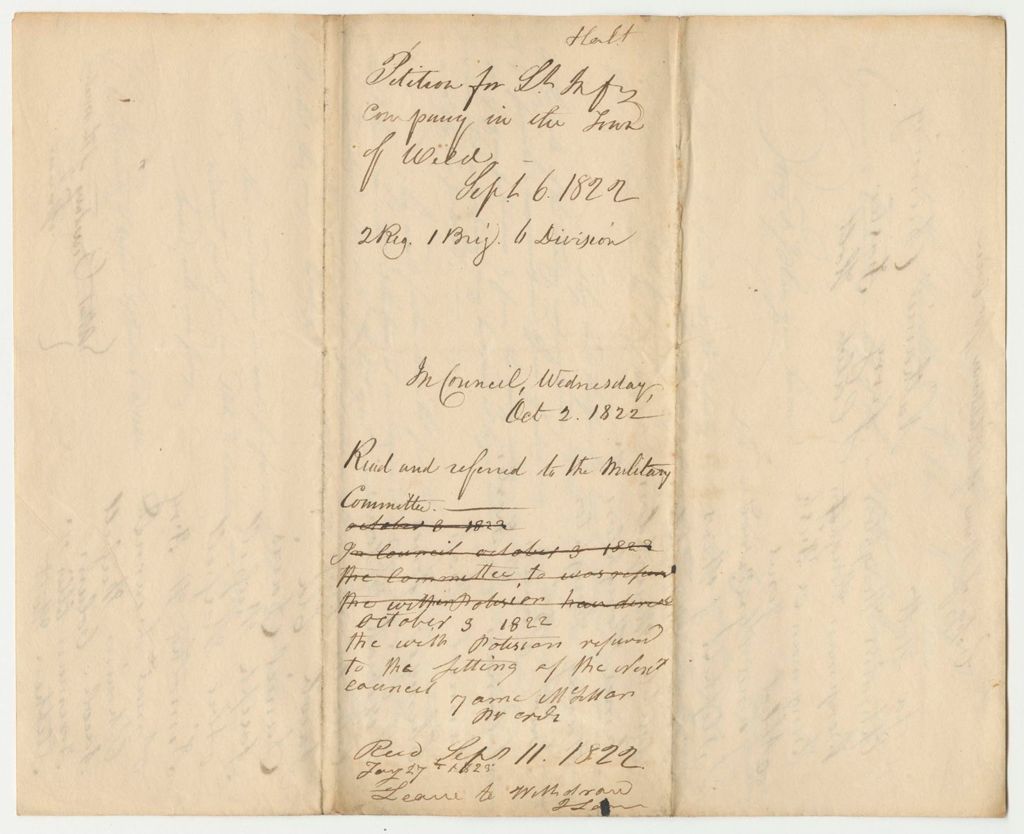 Halt
Petition for Lt Infy
Company in the Town
of Weld
Sept 6. 1822
2 Reg. 1 Brig. 6 Division
In Council, Wednesday,
Oct 2. 1822
Read and referred to the Military
Committee.
october 3 1822
In Council october 3 1822
the Committee to was refured
the within Potision
October 3 1822
the with Potision refured
to the sitting of the Next
council
pr order
Recd Sept 11. 1822
27th 1823
Leave to Withdraw